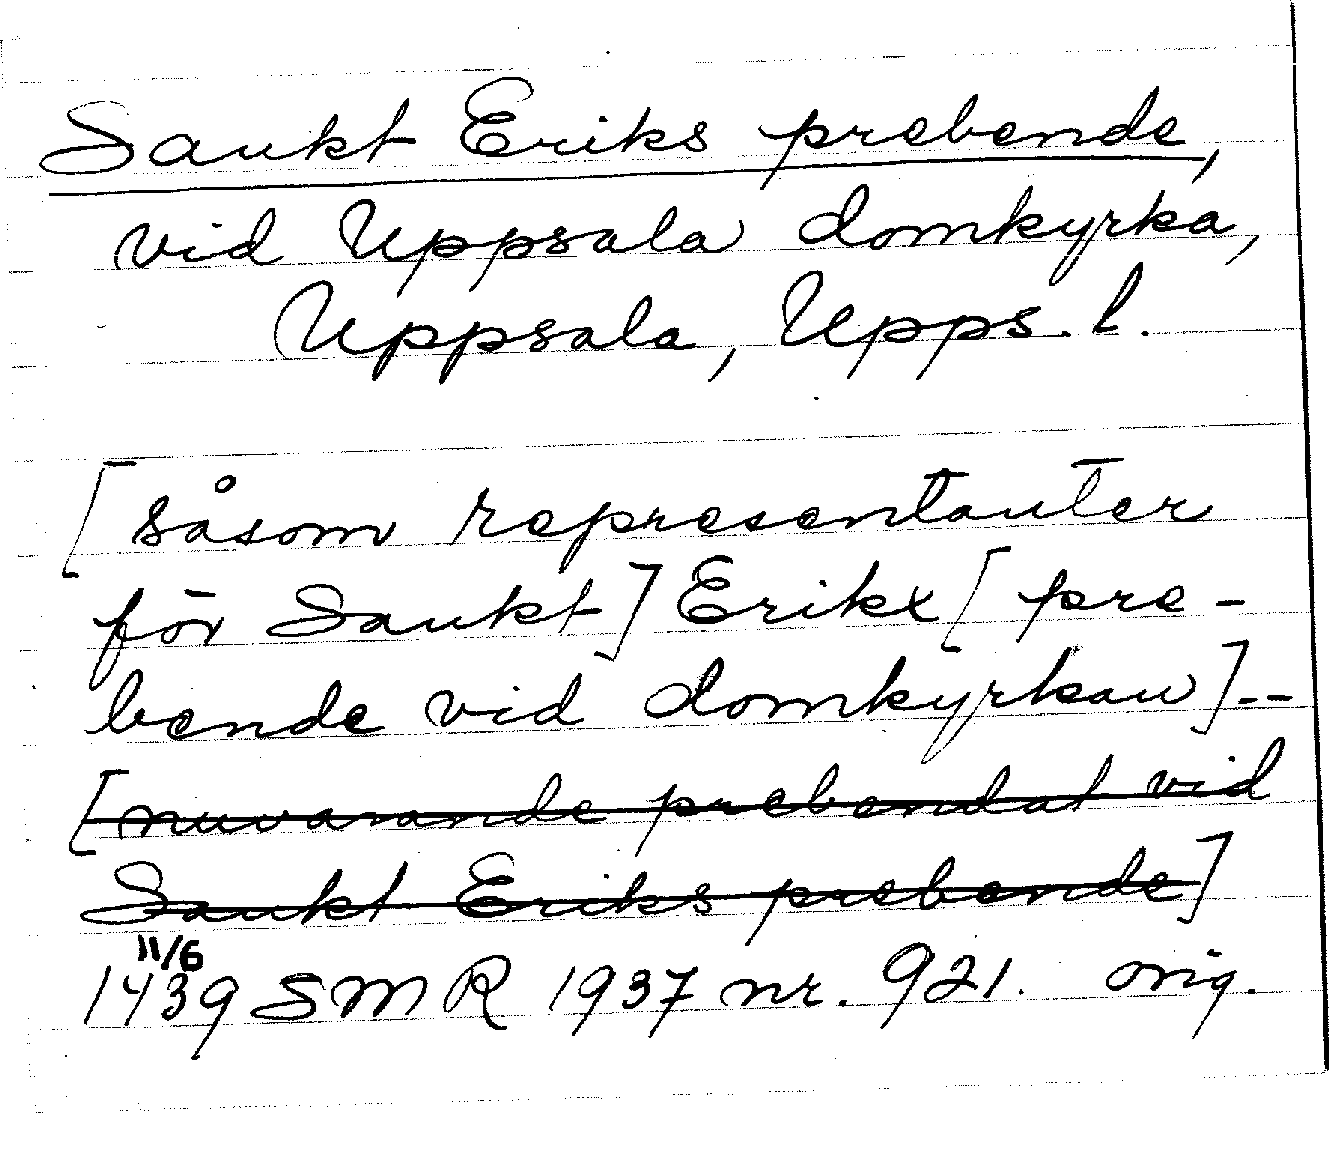 Sankt Eriks prebende,
vid Uppsala domkyrka,
Uppsala, Upps. l.
[såsom representanter
för Sankt] Erikx [pre-
bende vid domkyrkan]--
[nuvarande prebendat vid
Sankt Eriks prebende]
11/6
1439 SMR 1937 nr. 921. orig.